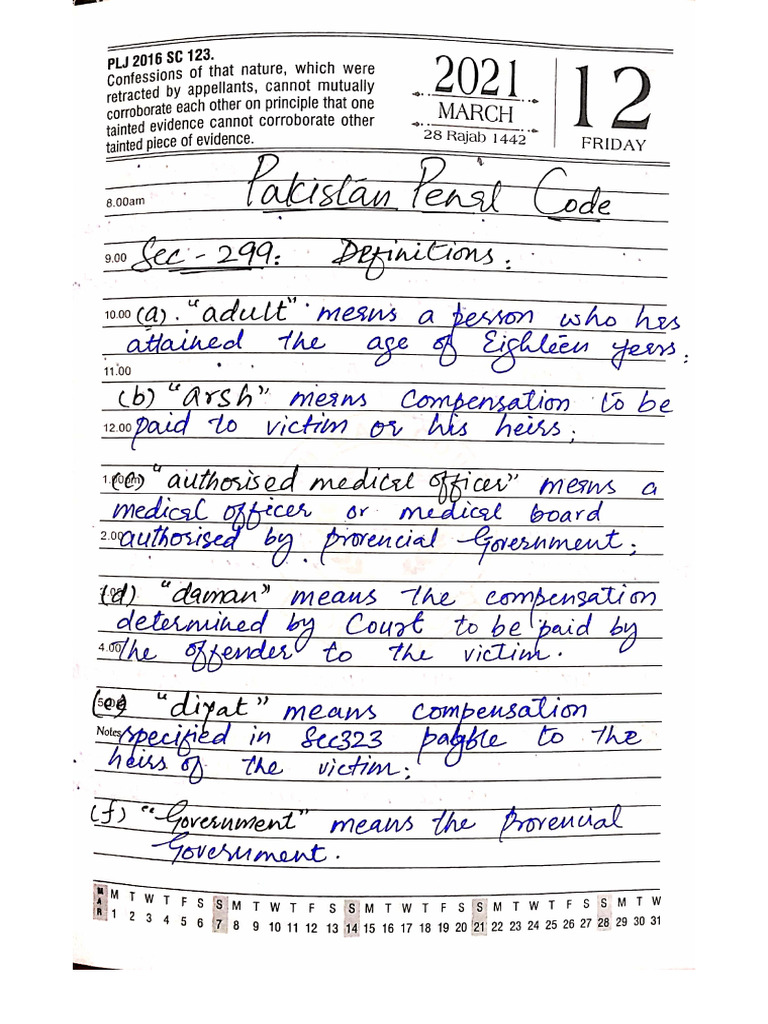 PLJ 2016 SC 123.
Confessions of that nature, which were
retracted by appellants, cannot mutually
corroborate each other on principle that one
tainted evidence cannot corroborate other
tainted piece of evidence.
2021
MARCH
28 Rajab 1442
12
FRIDAY
8.00am Pakistan Penal Code
9.00 Sec - 299: Definitions:
10.00 (a). "adult" means a person who has
attained the age of Eighteen years;
11.00
(b) "arsh" means compensation to be
12.00 paid to victim or his heirs;
1.00pm (c) "authorised medical officer" means a
medical officer or medical board
2.00 authorised by provencial Government;
(d) "daman" means the compensation
determined by Court to be paid by
4.00 the offender to the victim.
(e) "diyat" means compensation
Notes specified in Sec323 payble to the
heirs of the victim;
(f) "Government" means the Provencial
Government.
MAR
M T W T F S S M T W T F S S M T W T F S S M T W T F S S M T W
1 2 3 4 5 6 7 8 9 10 11 12 13 14 15 16 17 18 19 20 21 22 23 24 25 26 27 28 29 30 31